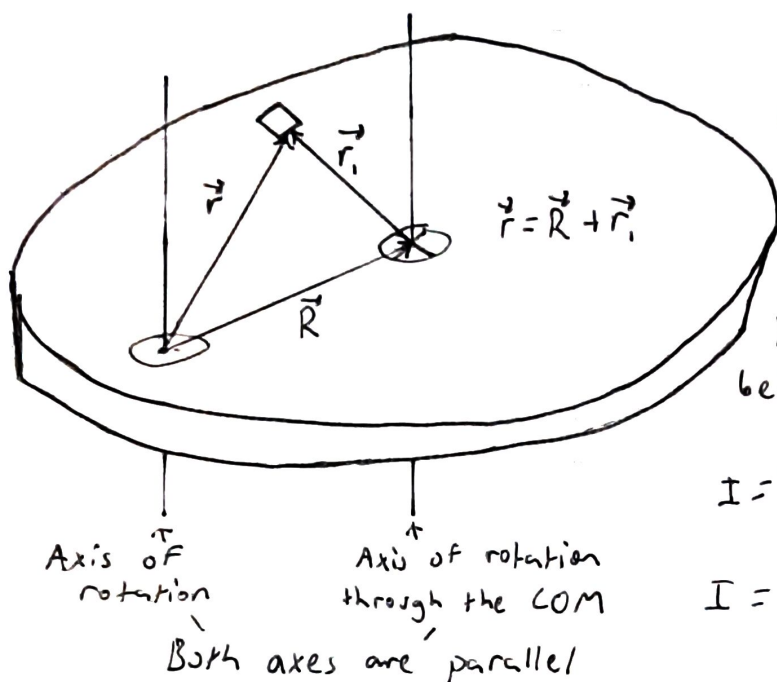 r⃗
r⃗₁
r⃗ = R⃗ + r⃗₁
R⃗
be
I =
Axis of
rotation
Axis of rotation
through the COM
I =
Both axes are parallel